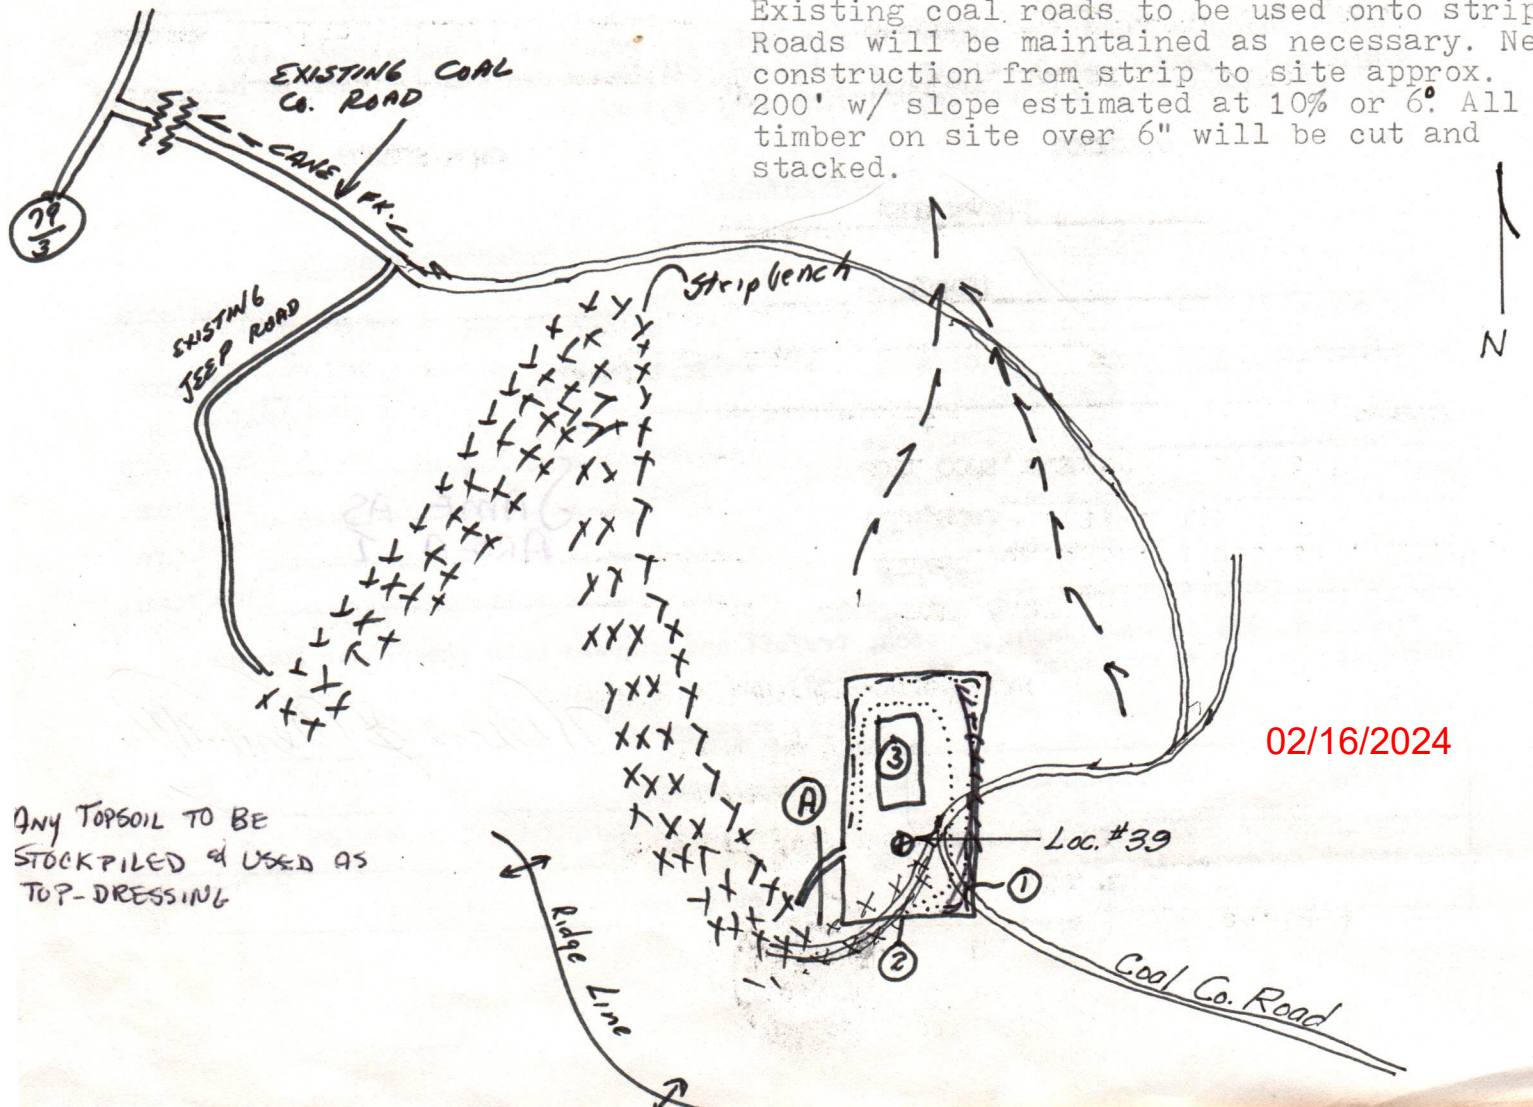 Existing coal roads to be used onto strip
Roads will be maintained as necessary. Ne
construction from strip to site approx.
200' w/ slope estimated at 10% or 6° All
timber on site over 6" will be cut and
stacked.
EXISTING COAL
CO. ROAD
CANE FK.
79
3
EXISTING
JEEP ROAD
Strip bench
N
02/16/2024
SAME AS
AREA I
3
A
Loc. #39
1
2
ANY TOPSOIL TO BE
STOCKPILED & USED AS
TOP-DRESSING
Ridge Line
Coal Co. Road